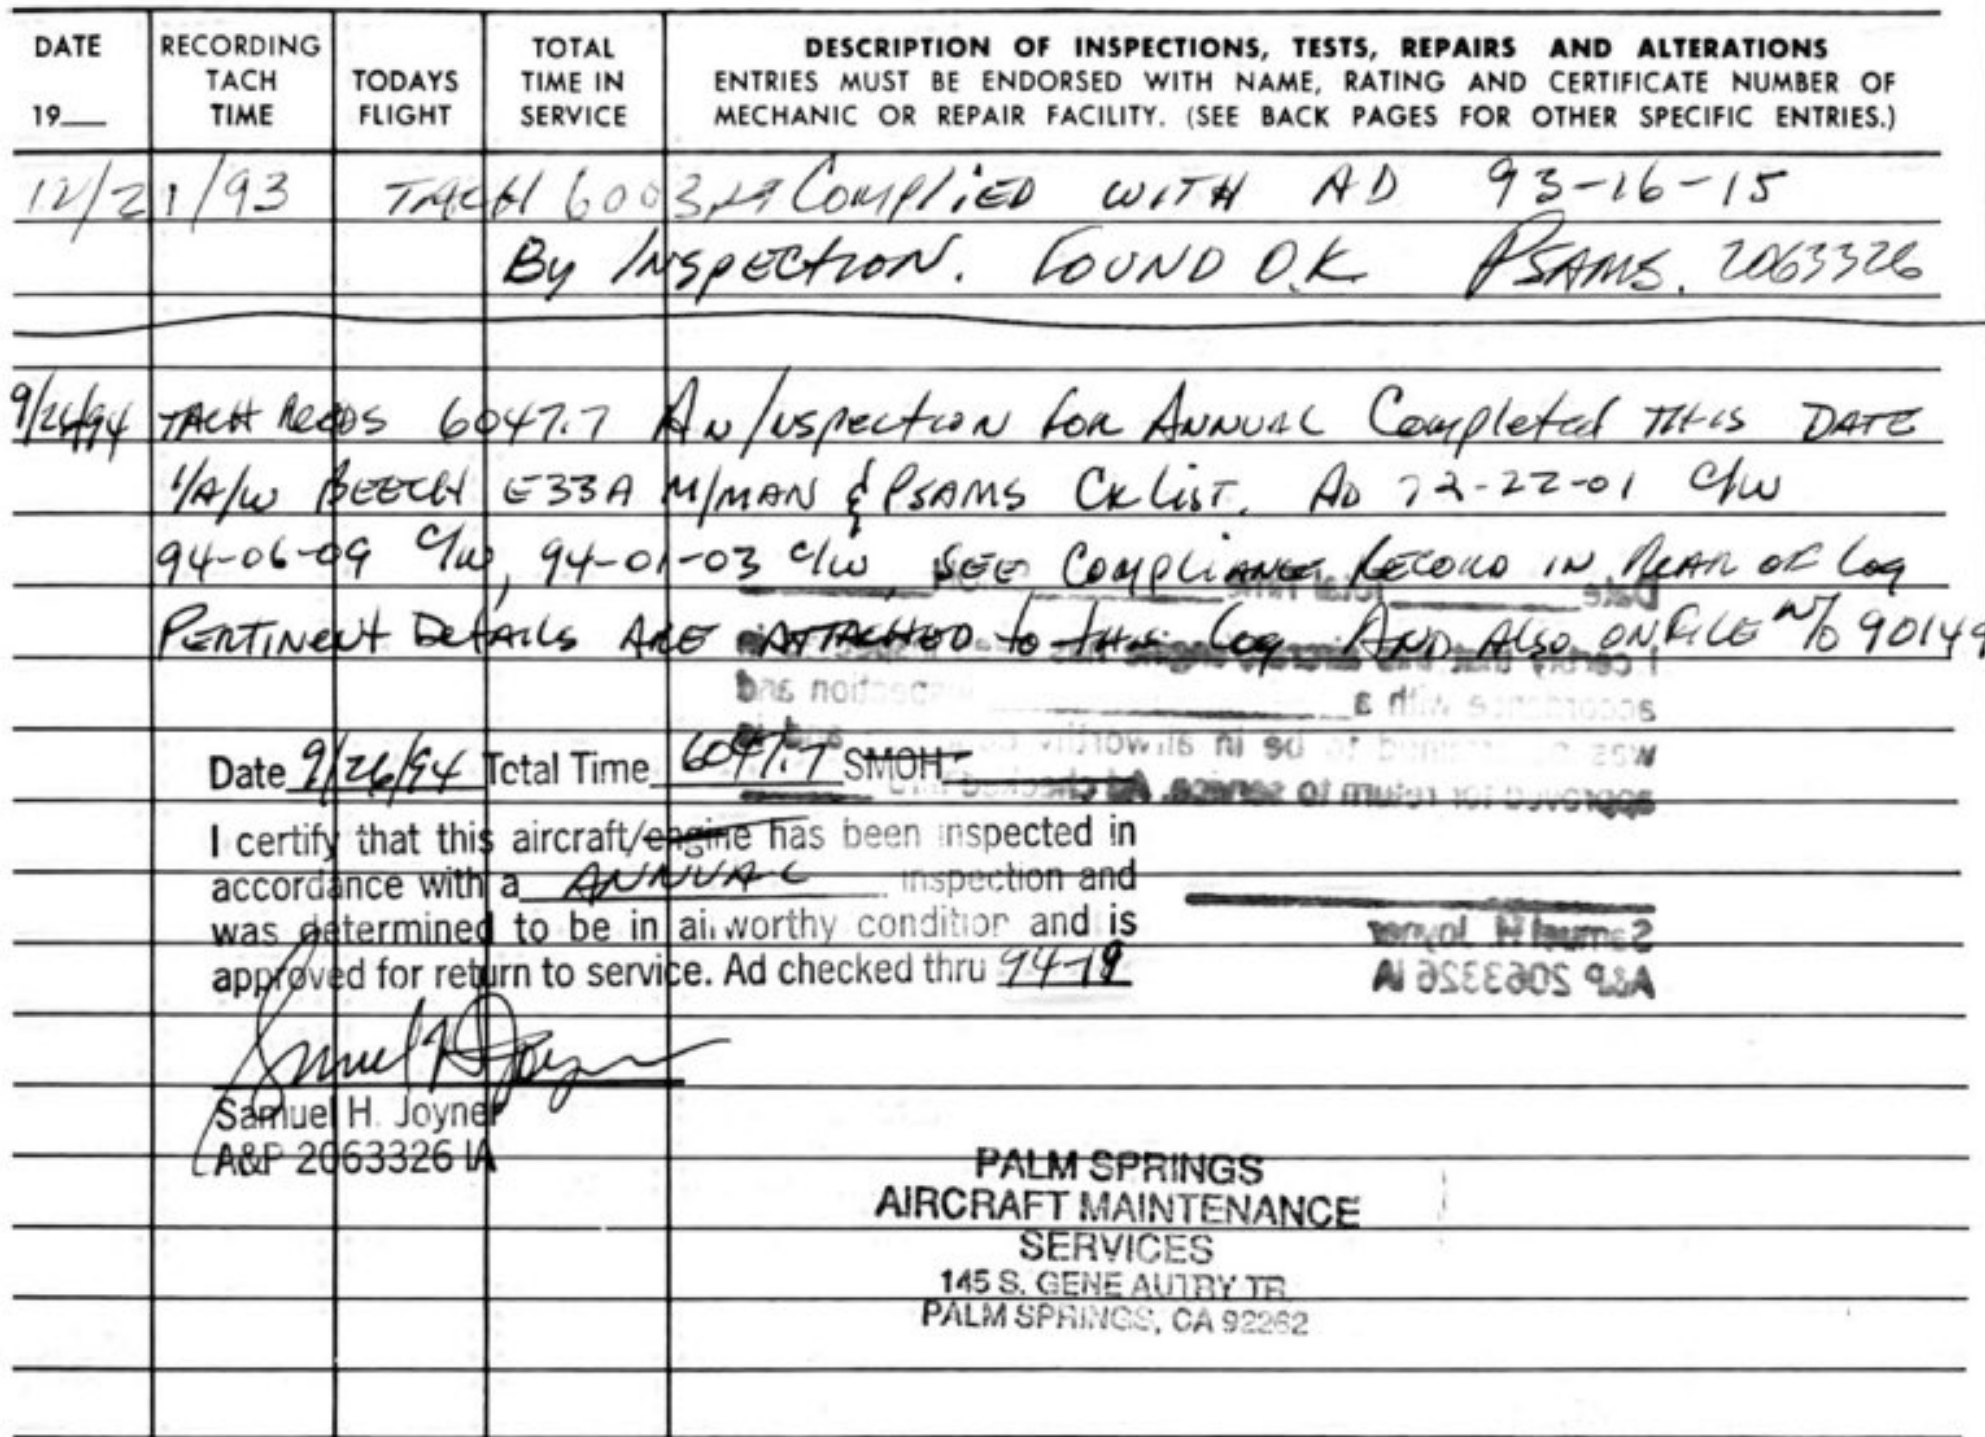 DATE
19
RECORDING
TACH
TIME
TODAYS
FLIGHT
TOTAL
TIME IN
SERVICE
DESCRIPTION OF INSPECTIONS, TESTS, REPAIRS AND ALTERATIONS
ENTRIES MUST BE ENDORSED WITH NAME, RATING AND CERTIFICATE NUMBER OF
MECHANIC OR REPAIR FACILITY. (SEE BACK PAGES FOR OTHER SPECIFIC ENTRIES.)
12/21/93 TACH COMPLiED WITH AD 93-16-15
By INSPECTION. FOUND O.K. PSAMS. 2063326
9/26/94 TACH READS 6047.7 AN INSPECTION FOR ANNUAL Completed THIS DATE
I/A/W BEECH E33A M/MAN & PSAMS CK LIST. AD 72-22-01 C/W
94-06-09 C/W, 94-01-03 C/W SEE COMPLIANCE RECORD IN REAR OF LOG
PERTINENT DETAILS ARE ATTACHED to THIS LOG AND ALSO ON FILE W/O 90149
Date 9/26/94 Total Time 6047.7 SMOH
I certify that this aircraft/engine has been inspected in
accordance with a ANNUAL inspection and
was determined to be in airworthy condition and is
approved for return to service. Ad checked thru 94-19
Samuel H. Joyner
Samuel H. Joyner
A&P 2063326 IA
Date Total Time
I certify that this aircraft/engine has been inspected in
accordance with a inspection and
was determined to be in airworthy condition and is
approved for return to service. Ad checked thru
Samuel H. Joyner
A&P 2063326 IA
PALM SPRINGS
AIRCRAFT MAINTENANCE
SERVICES
145 S. GENE AUTRY TR
PALM SPRINGS, CA 92262